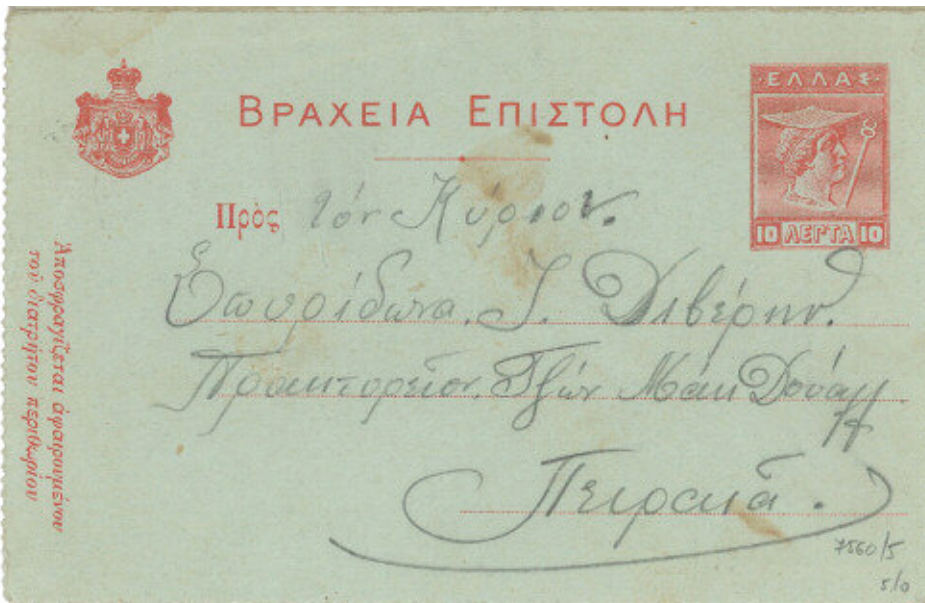 ΕΛΛΑΣ
ΒΡΑΧΕΙΑ ΕΠΙΣΤΟΛΗ
10 ΛΕΠΤΑ 10
Πρὸς τόν Κύριον.
Σπυρίδωνα. Ι. Διβέρην.
Πρακτορείον. Τζών Μάκ Δουάλλ
Πειραιά.
Ἀποσφραγίζεται ἀφαιρουμένου
τοῦ διατρήτου περιθωρίου
7560/5
5/0